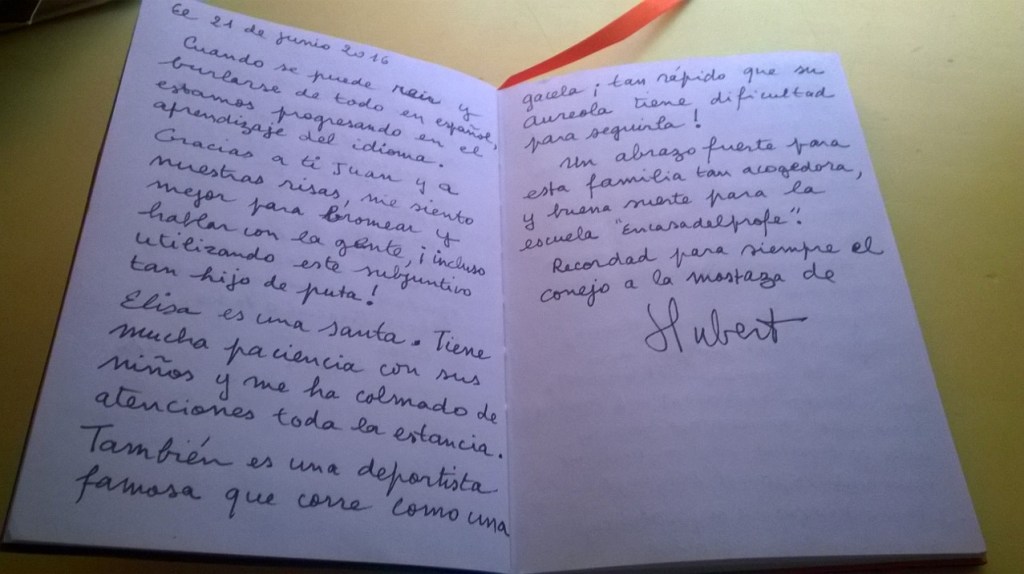 El 21 de junio 2016
Cuando se puede reir y
burlarse de todo en español,
estamos progresando en el
aprendizaje del idioma.
Gracias a ti Juan y a
nuestras risas, me siento
mejor para bromear y
hablar con la gente, ¡incluso
utilizando este subjuntivo
tan hijo de puta!
Elisa es una santa. Tiene
mucha paciencia con sus
niños y me ha colmado de
atenciones toda la estancia.
También es una deportista
famosa que corre como una
gacela ¡tan rápido que su
aureola tiene dificultad
para seguirla!
Un abrazo fuerte para
esta familia tan acogedora,
y buena suerte para la
escuela "Encasadelprofe".
Recordad para siempre el
conejo a la mostaza de
Hubert